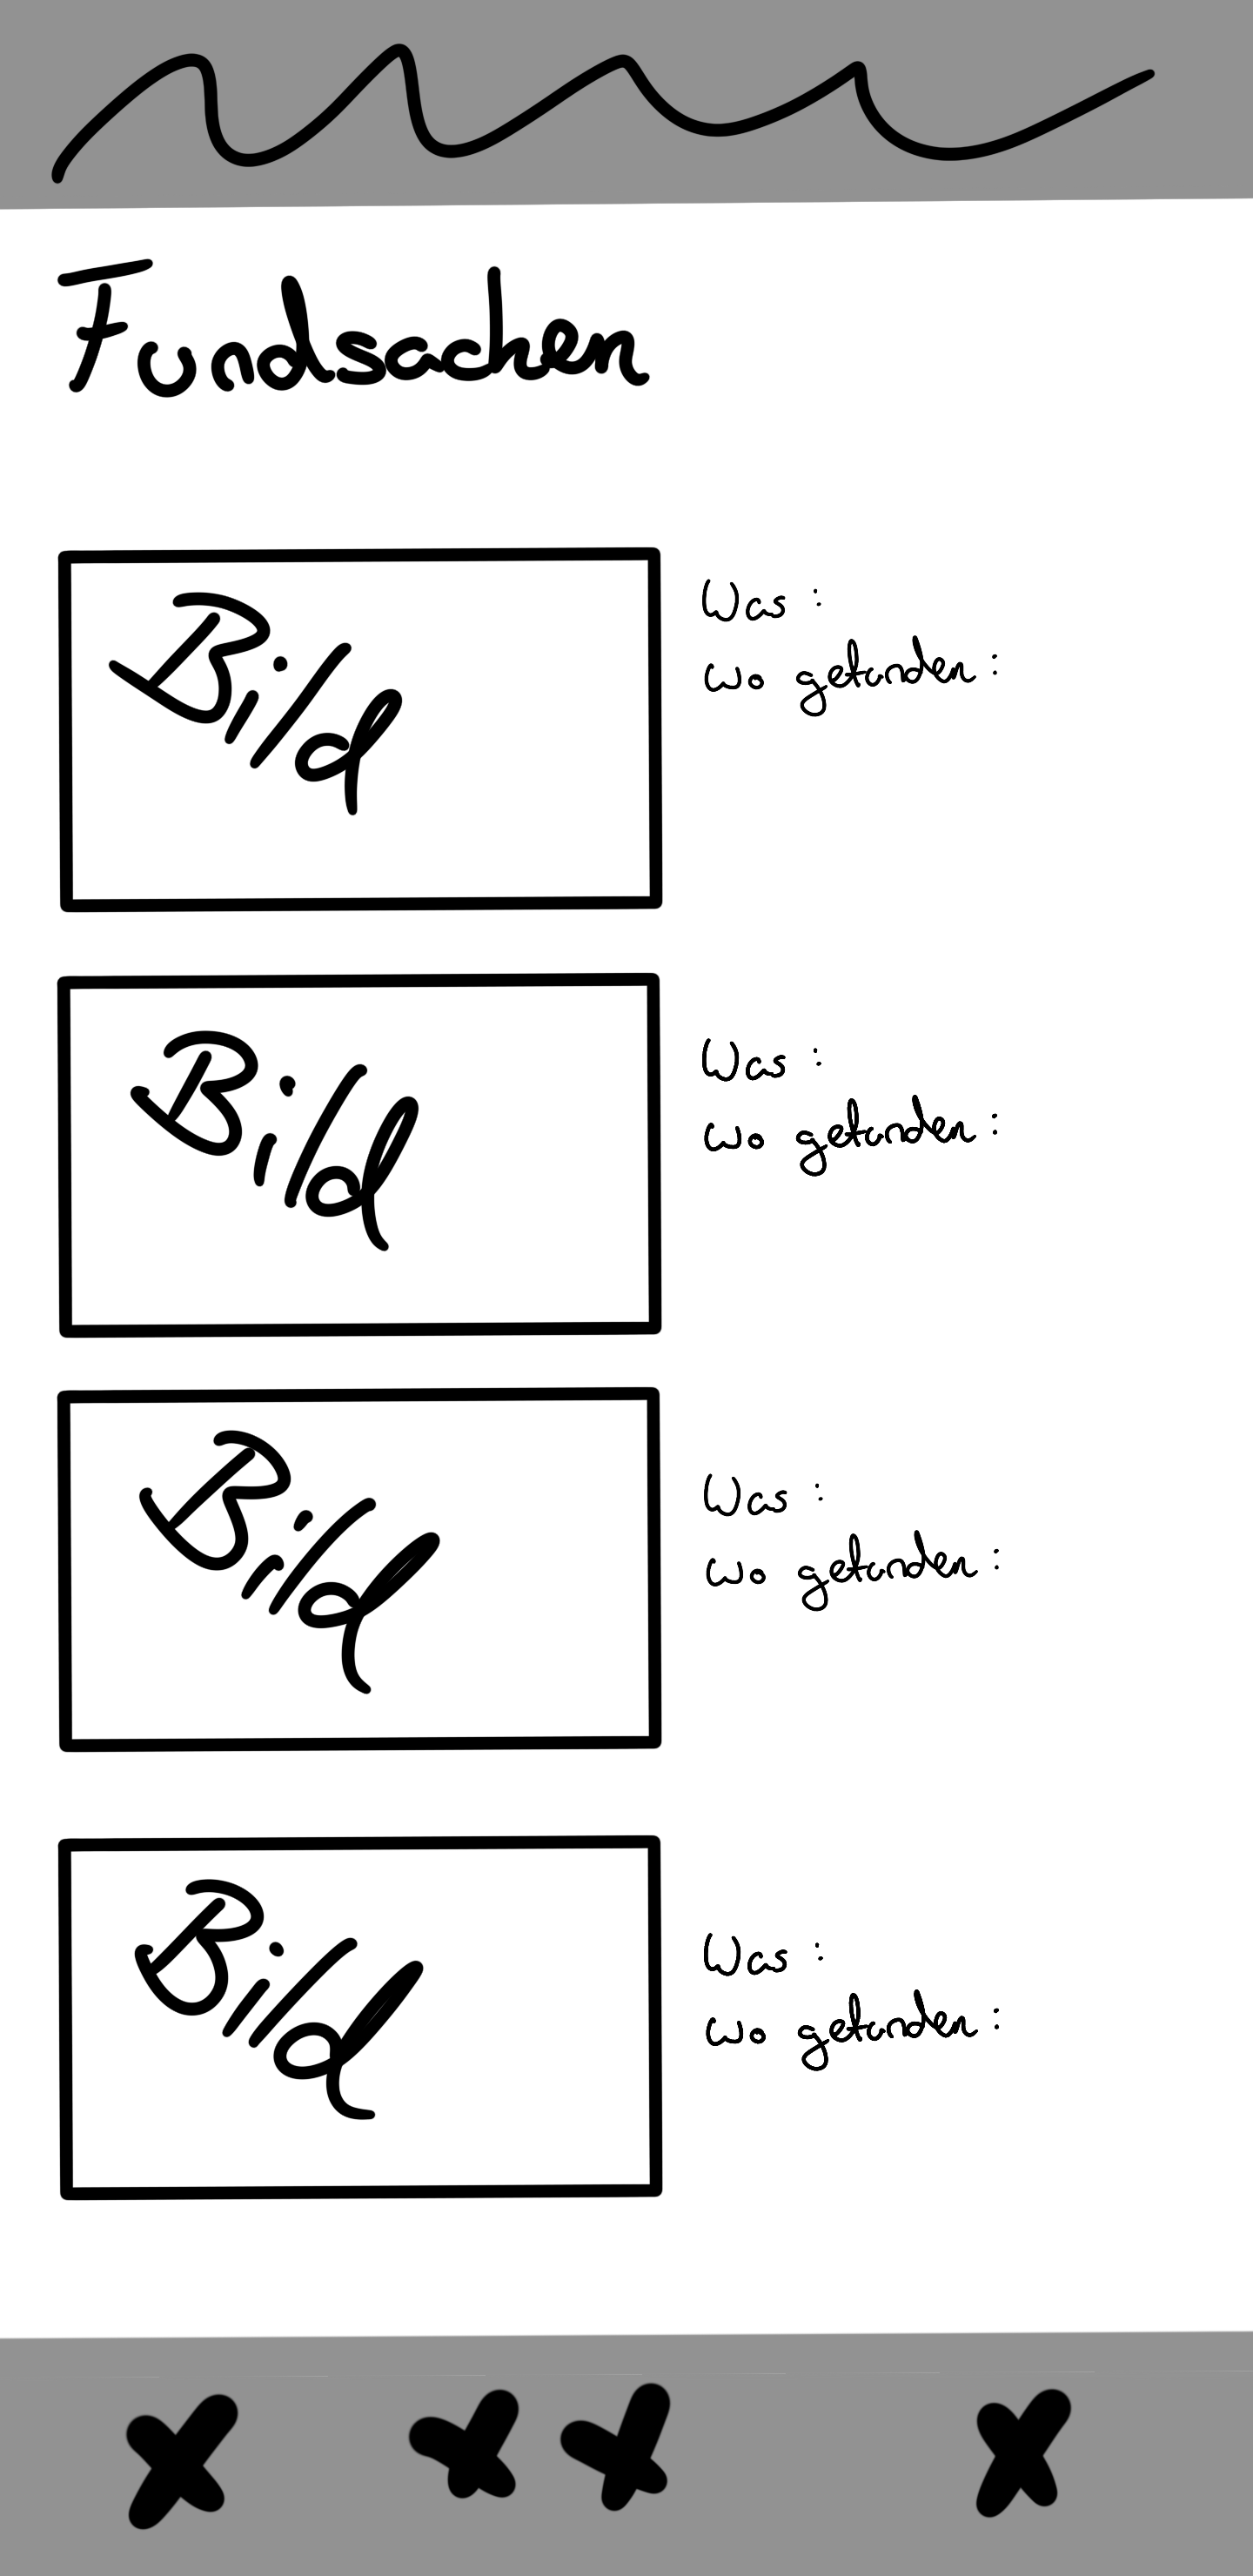 Fundsachen
Bild
Was :
wo gefunden :
Bild
Was :
wo gefunden :
Bild
Was :
wo gefunden :
Bild
Was :
wo gefunden :